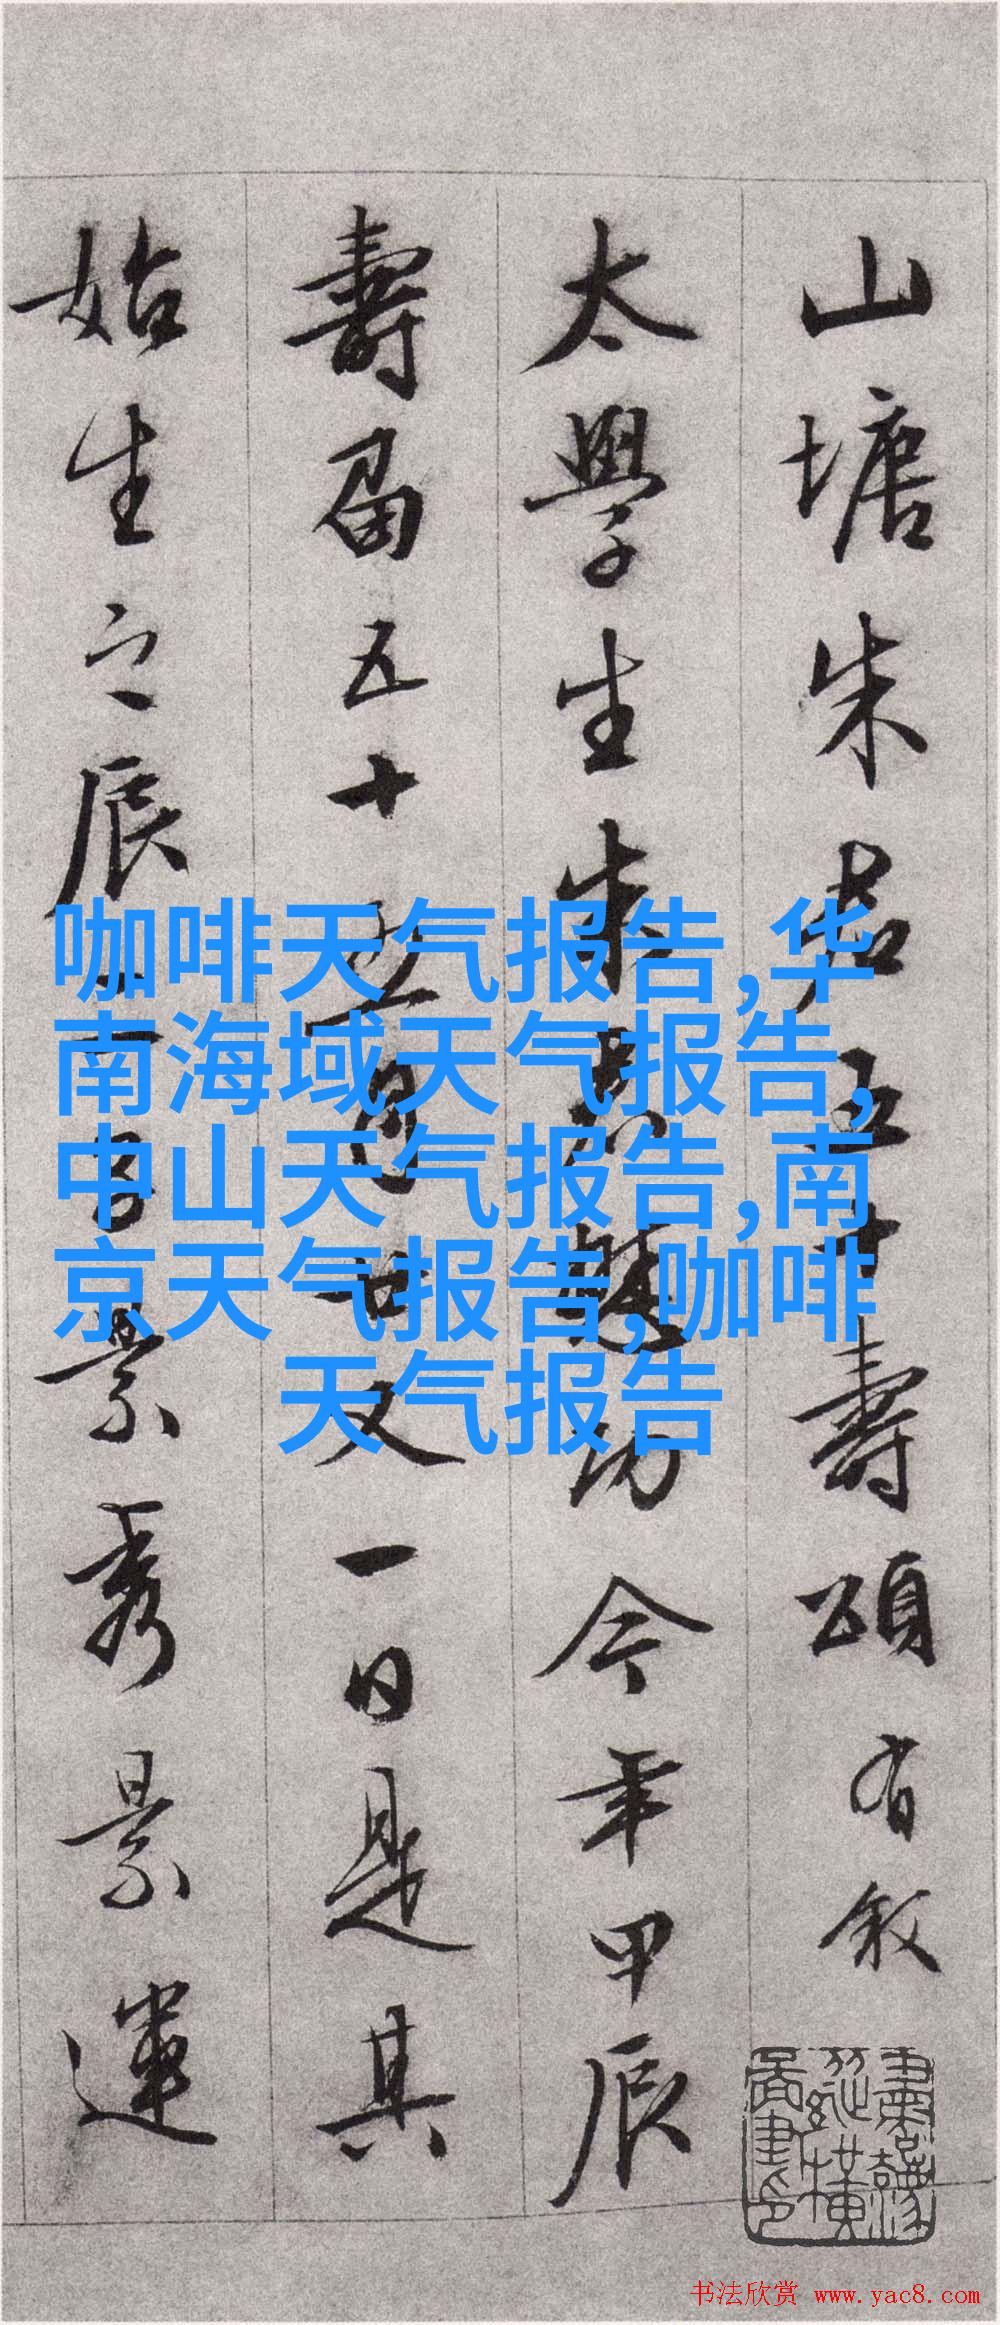 山塘朱君五十壽頌有叙
太學生朱功今年甲辰
壽屆五十廿又一日是其
始生之辰景秀景運
咖啡天气报告,华
南海域天气报告,
中山天气报告,南
京天气报告,咖啡
天气报告
书法欣赏 www.yac8.com